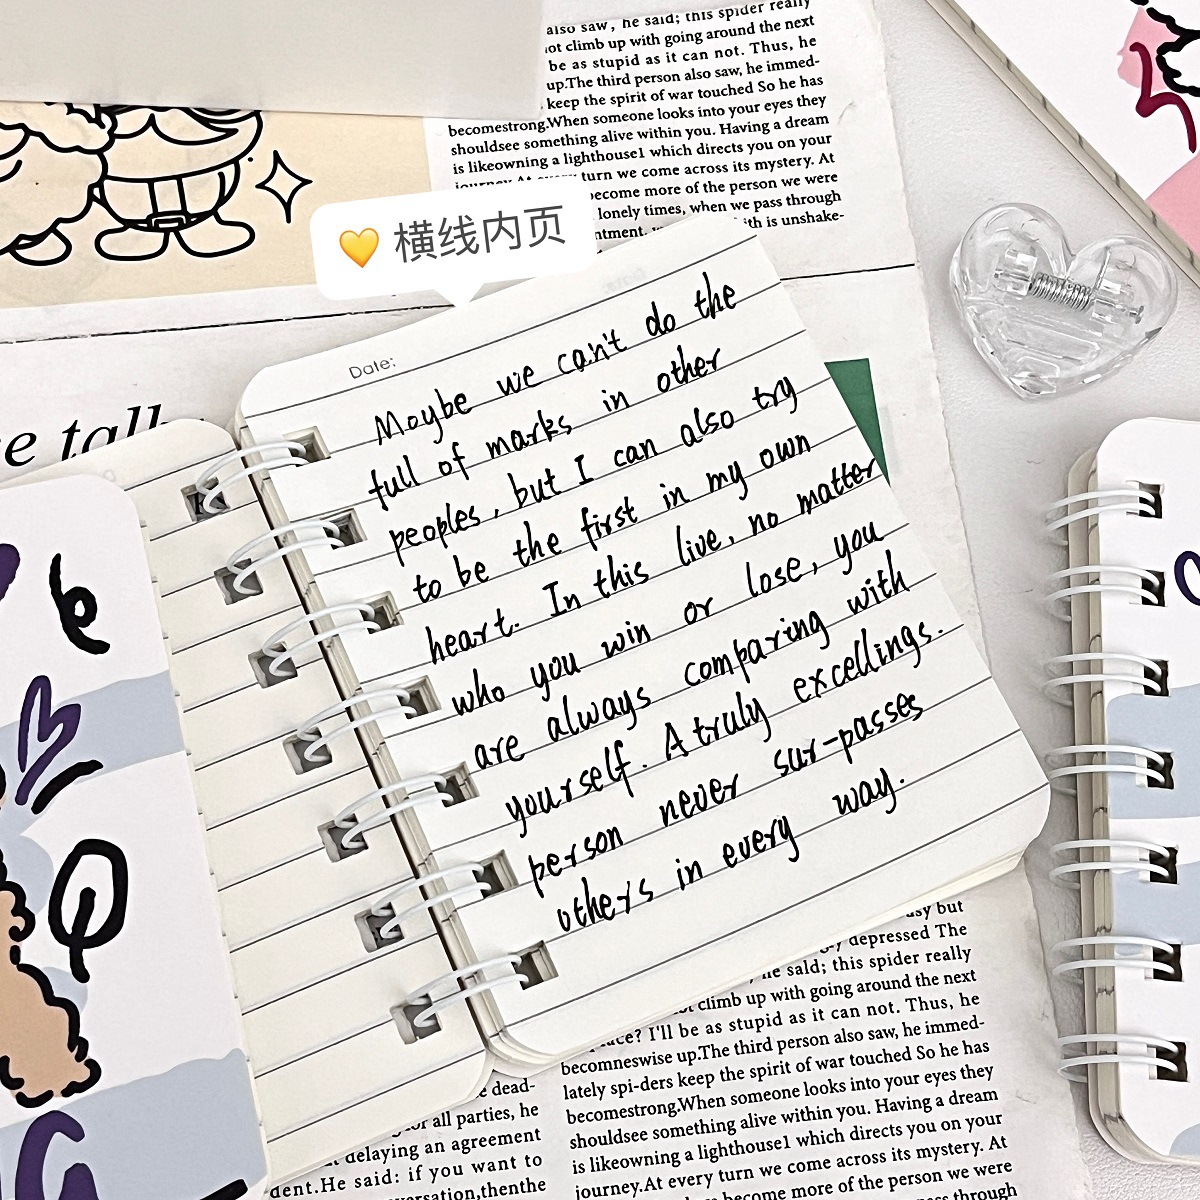 also saw, he said; this spider really
ot climb up with going around the next
be as stupid as it can not. Thus, he
up.The third person also saw, he immed-
keep the spirit of war touched So he has
becomestrong.When someone looks into your eyes they
shouldsee something alive within you. Having a dream
is likeowning a lighthouse1 which directs you on your
journey.At every turn we come across its mystery. At
become more of the person we were
lonely times, when we pass through
ntment. ith is unshake-
横线内页
e talk
Date:
Maybe we can't do the
full of marks in other
peoples, but I can also try
to be the first in my own
heart. In this live, no matter
who you win or lose, you
are always comparing with
yourself. A truly excellings.
person never sur-passes
others in every way.
e
Q
asy but
depressed The
he said; this spider really
climb up with going around the next
place? I'll be as stupid as it can not. Thus, he
becomneswise up.The third person also saw, he immed-
lately spi-ders keep the spirit of war touched So he has
becomestrong.When someone looks into your eyes they
shouldsee something alive within you. Having a dream
is likeowning a lighthouse1 which directs you on your
journey.At every turn we come across its mystery. At
become more of the person we were
pass through
e dead-
for all parties, he
delaying an agreement
dent.He said: if you want to
versation,thenthe